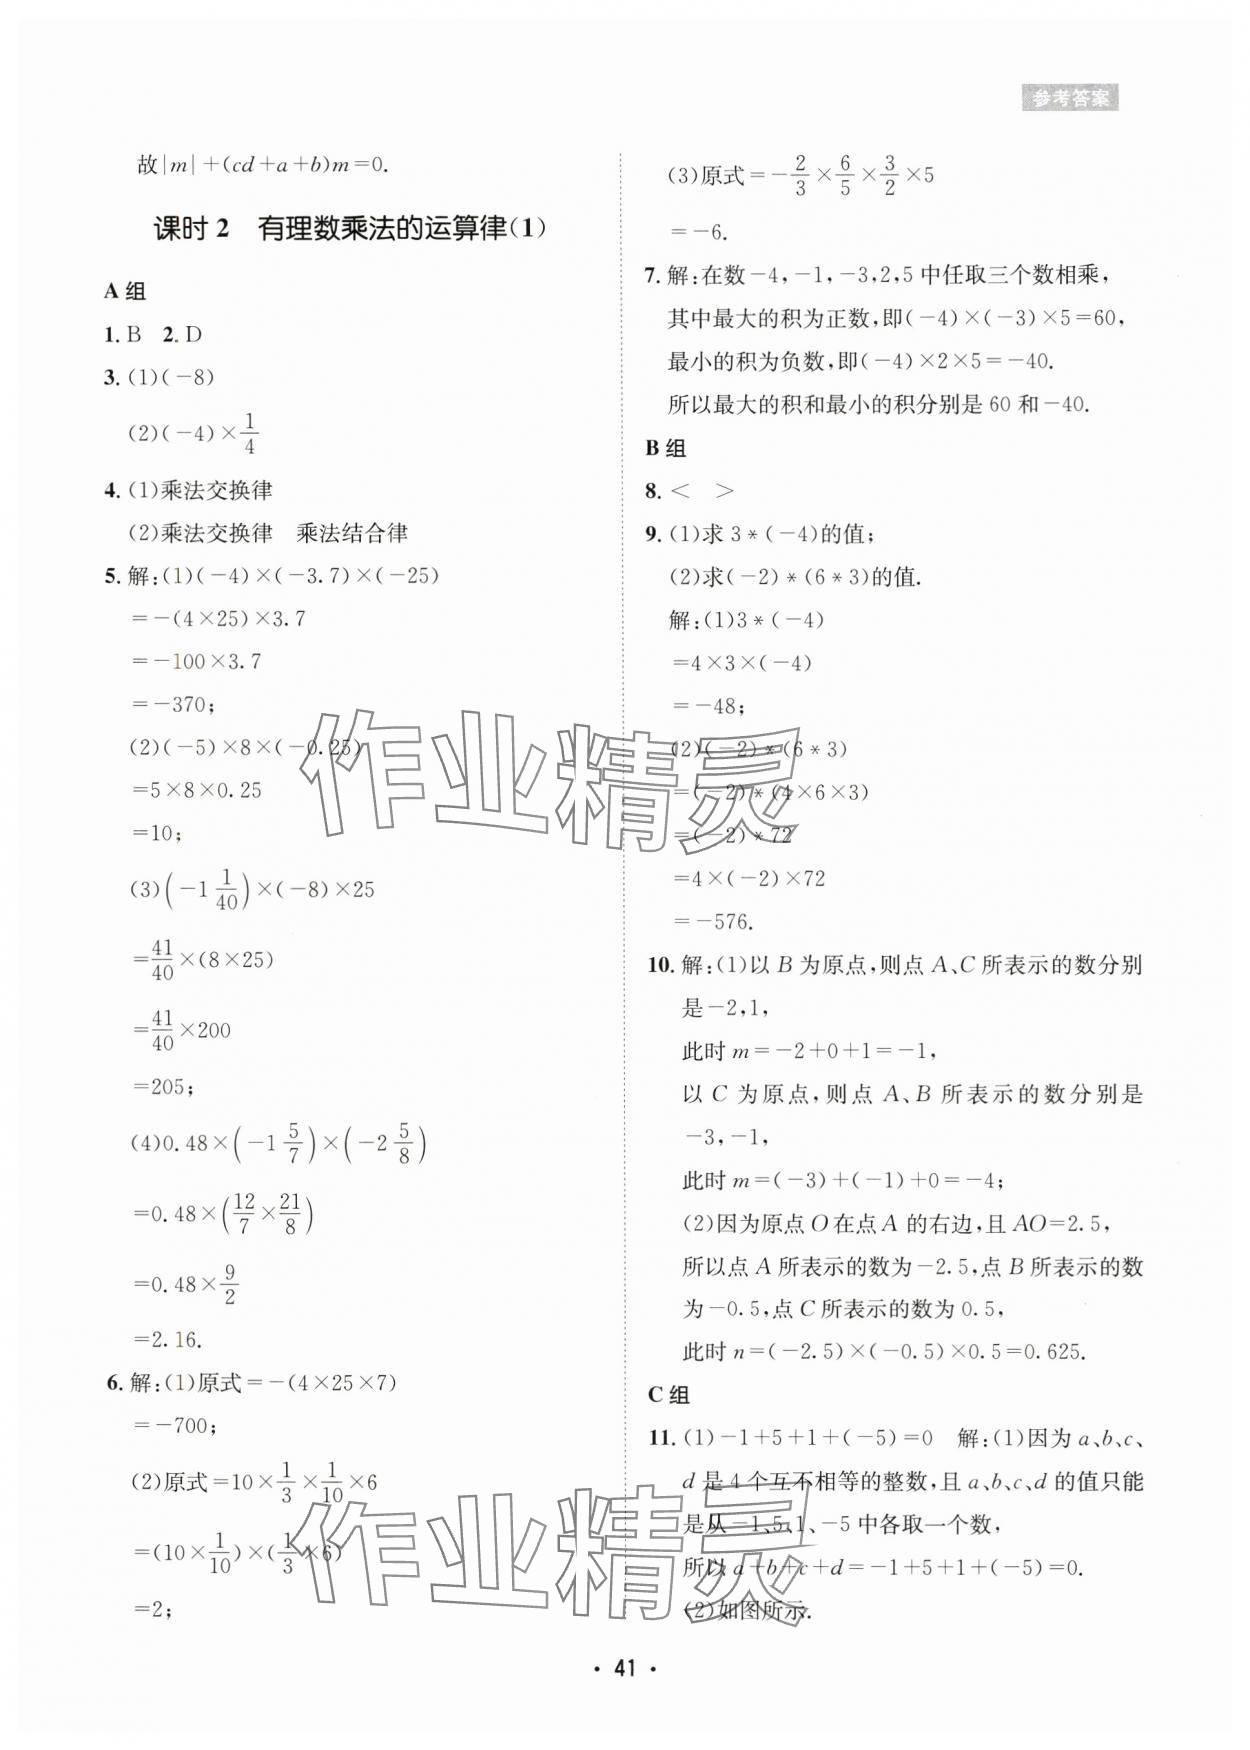 参考答案
故|m|+(cd+a+b)m=0.
课时2 有理数乘法的运算律(1)
A组
1. B 2. D
3. (1)(-8)
(2)(-4)×1/4
4. (1)乘法交换律
(2)乘法交换律 乘法结合律
5. 解:(1)(-4)×(-3.7)×(-25)
=-(4×25)×3.7
=-100×3.7
=-370;
(2)(-5)×8×(-0.25)
=5×8×0.25
=10;
(3)(-1 1/40)×(-8)×25
=41/40×(8×25)
=41/40×200
=205;
(4)0.48×(-1 5/7)×(-2 5/8)
=0.48×(12/7×21/8)
=0.48×9/2
=2.16.
6. 解:(1)原式=-(4×25×7)
=-700;
(2)原式=10×1/3×1/10×6
=(10×1/10)×(1/3×6)
=2;
(3)原式=-2/3×6/5×3/2×5
=-6.
7. 解:在数-4,-1,-3,2,5中任取三个数相乘,
其中最大的积为正数,即(-4)×(-3)×5=60,
最小的积为负数,即(-4)×2×5=-40.
所以最大的积和最小的积分别是60和-40.
B组
8. < >
9. (1)求3*(-4)的值;
(2)求(-2)*(6*3)的值.
解:(1)3*(-4)
=4×3×(-4)
=-48;
(2)(-2)*(6*3)
=(-2)*(4×6×3)
=(-2)*72
=4×(-2)×72
=-576.
10. 解:(1)以B为原点,则点A、C所表示的数分别
是-2,1,
此时m=-2+0+1=-1,
以C为原点,则点A、B所表示的数分别是
-3,-1,
此时m=(-3)+(-1)+0=-4;
(2)因为原点O在点A的右边,且AO=2.5,
所以点A所表示的数为-2.5,点B所表示的数
为-0.5,点C所表示的数为0.5,
此时n=(-2.5)×(-0.5)×0.5=0.625.
C组
11. (1)-1+5+1+(-5)=0 解:(1)因为a、b、c、
d是4个互不相等的整数,且a、b、c、d的值只能
是从-1、5、1、-5中各取一个数,
所以a+b+c+d=-1+5+1+(-5)=0.
(2)如图所示.
作业精灵
作业精灵
· 41 ·